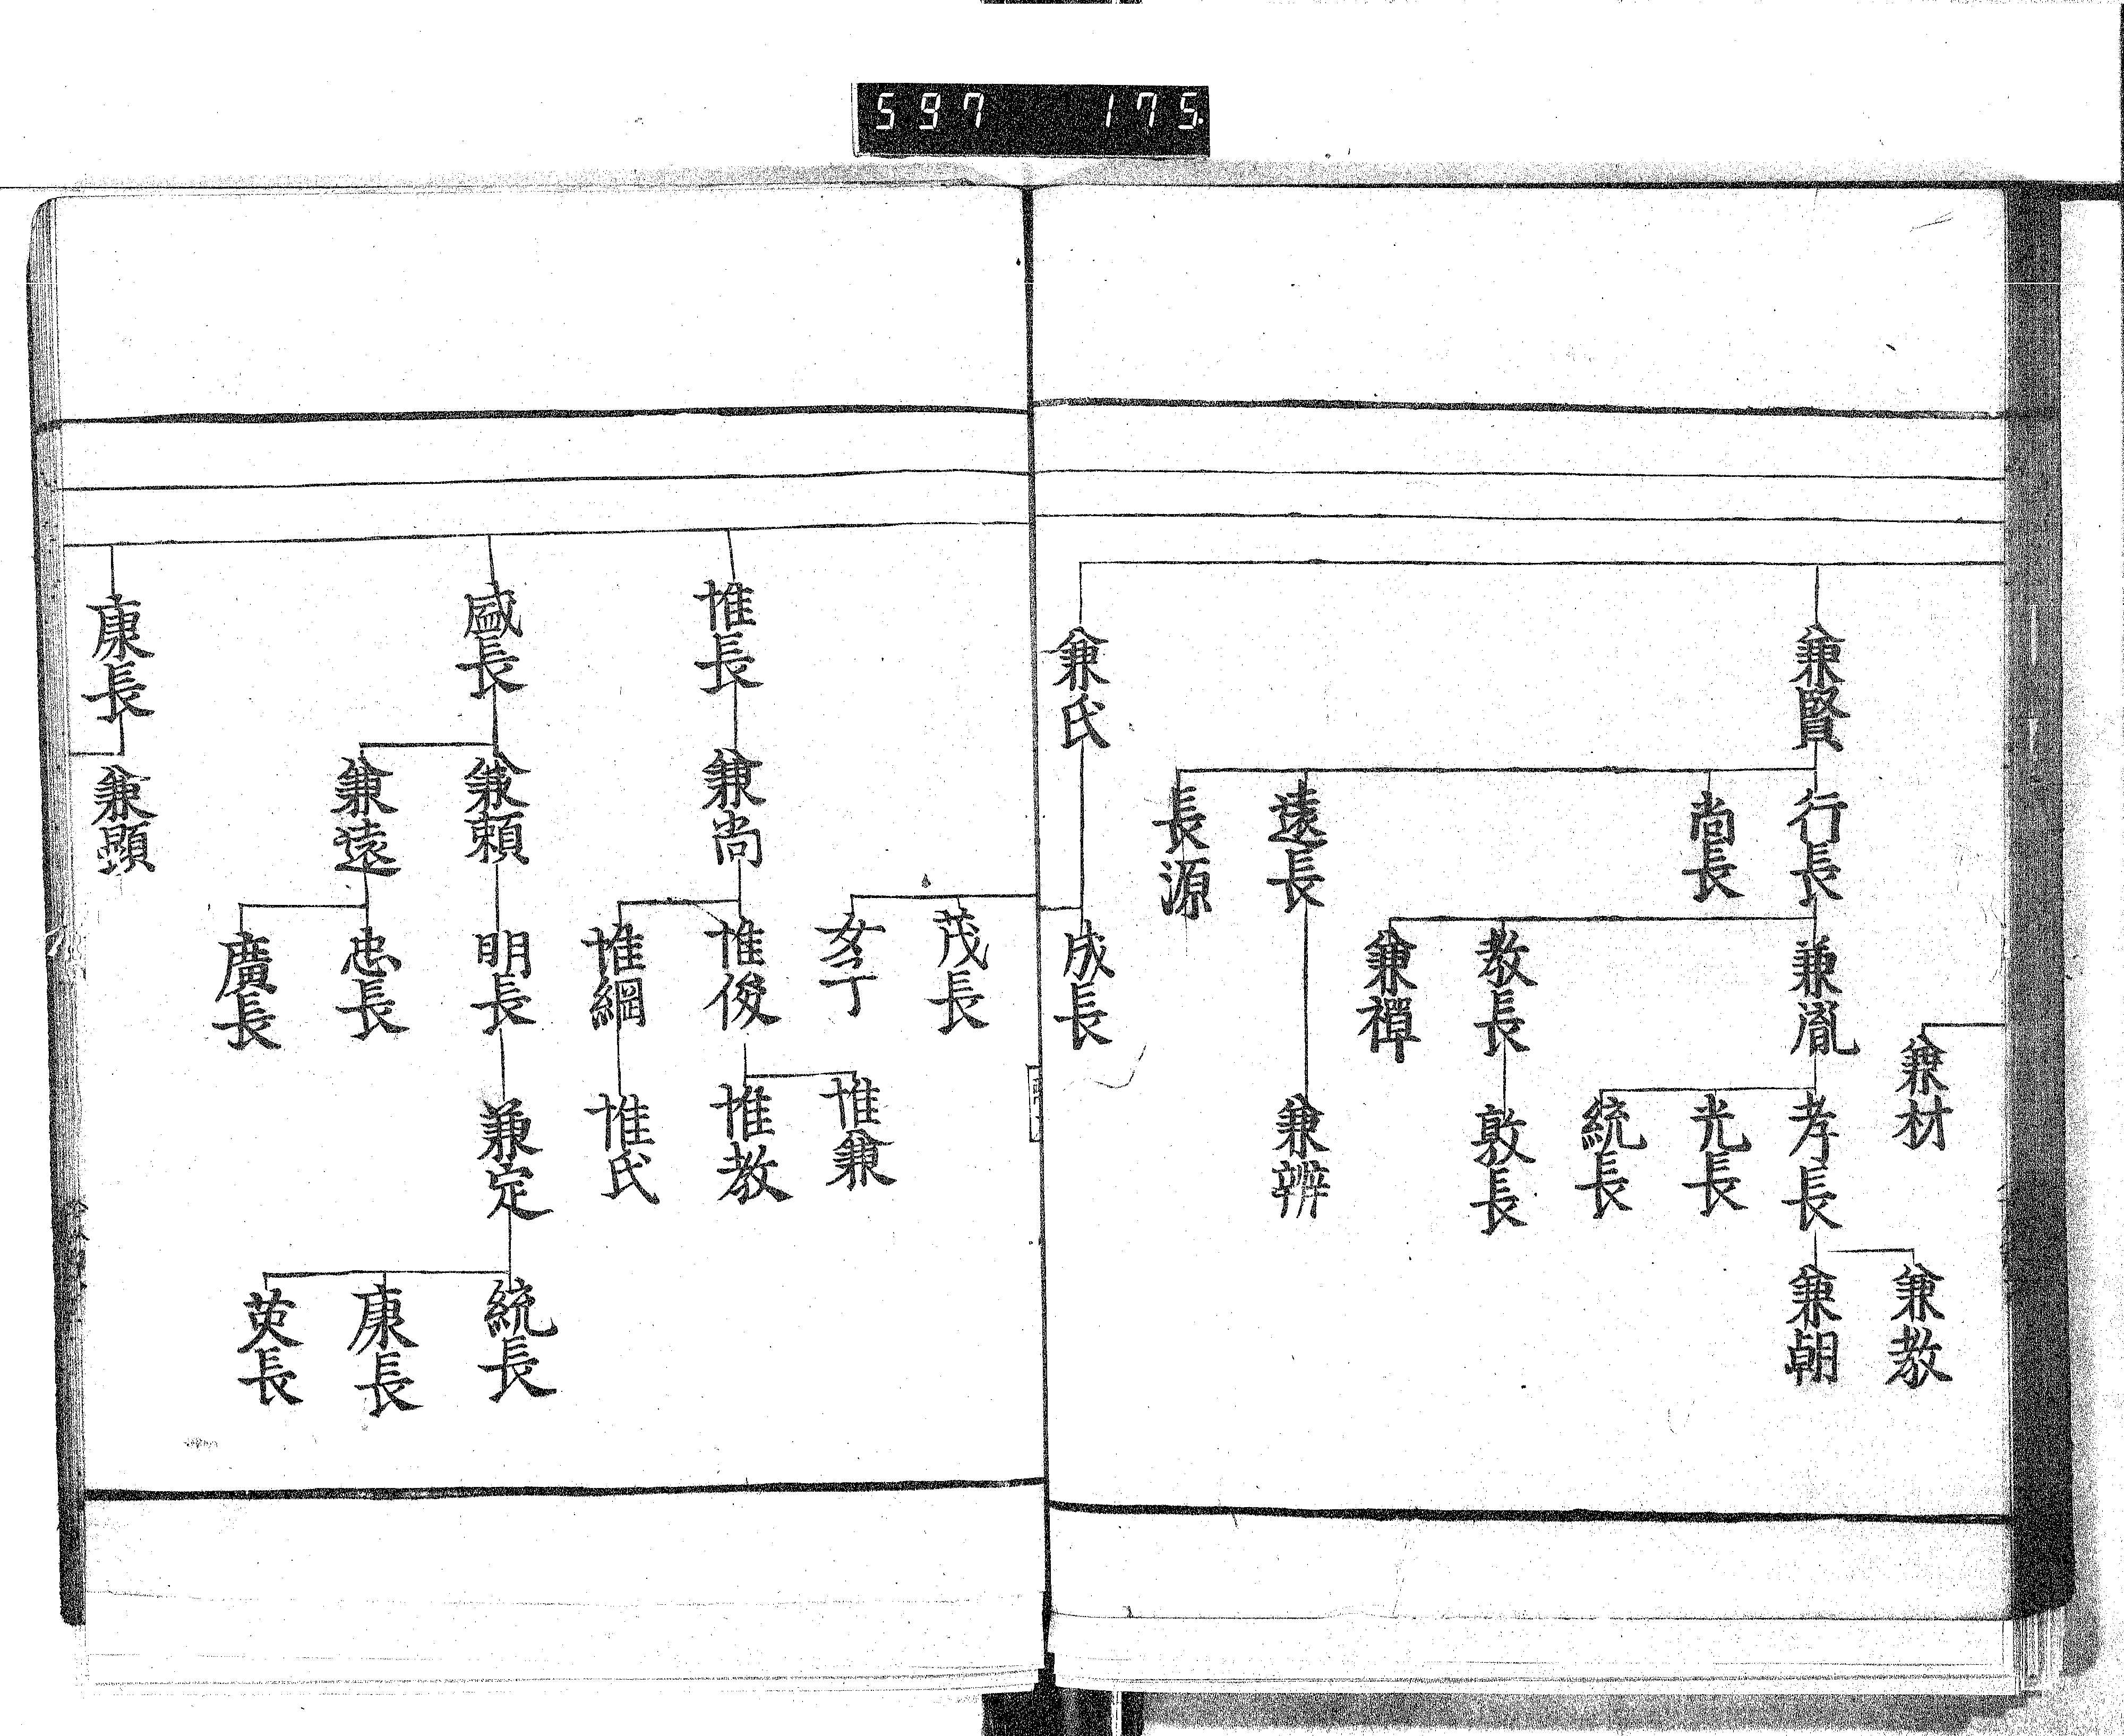 597 175
兼材
兼賢
行長
兼胤
孝長
兼教
兼朝
光長
統長
尚長
教長
敦長
兼禪
遠長
兼辨
長源
兼氏
成長
茂長
女子
惟長
兼尚
惟俊
惟兼
惟教
惟綱
惟氏
盛長
兼頼
明長
兼定
統長
康長
英長
兼遠
忠長
廣長
康長
兼顕